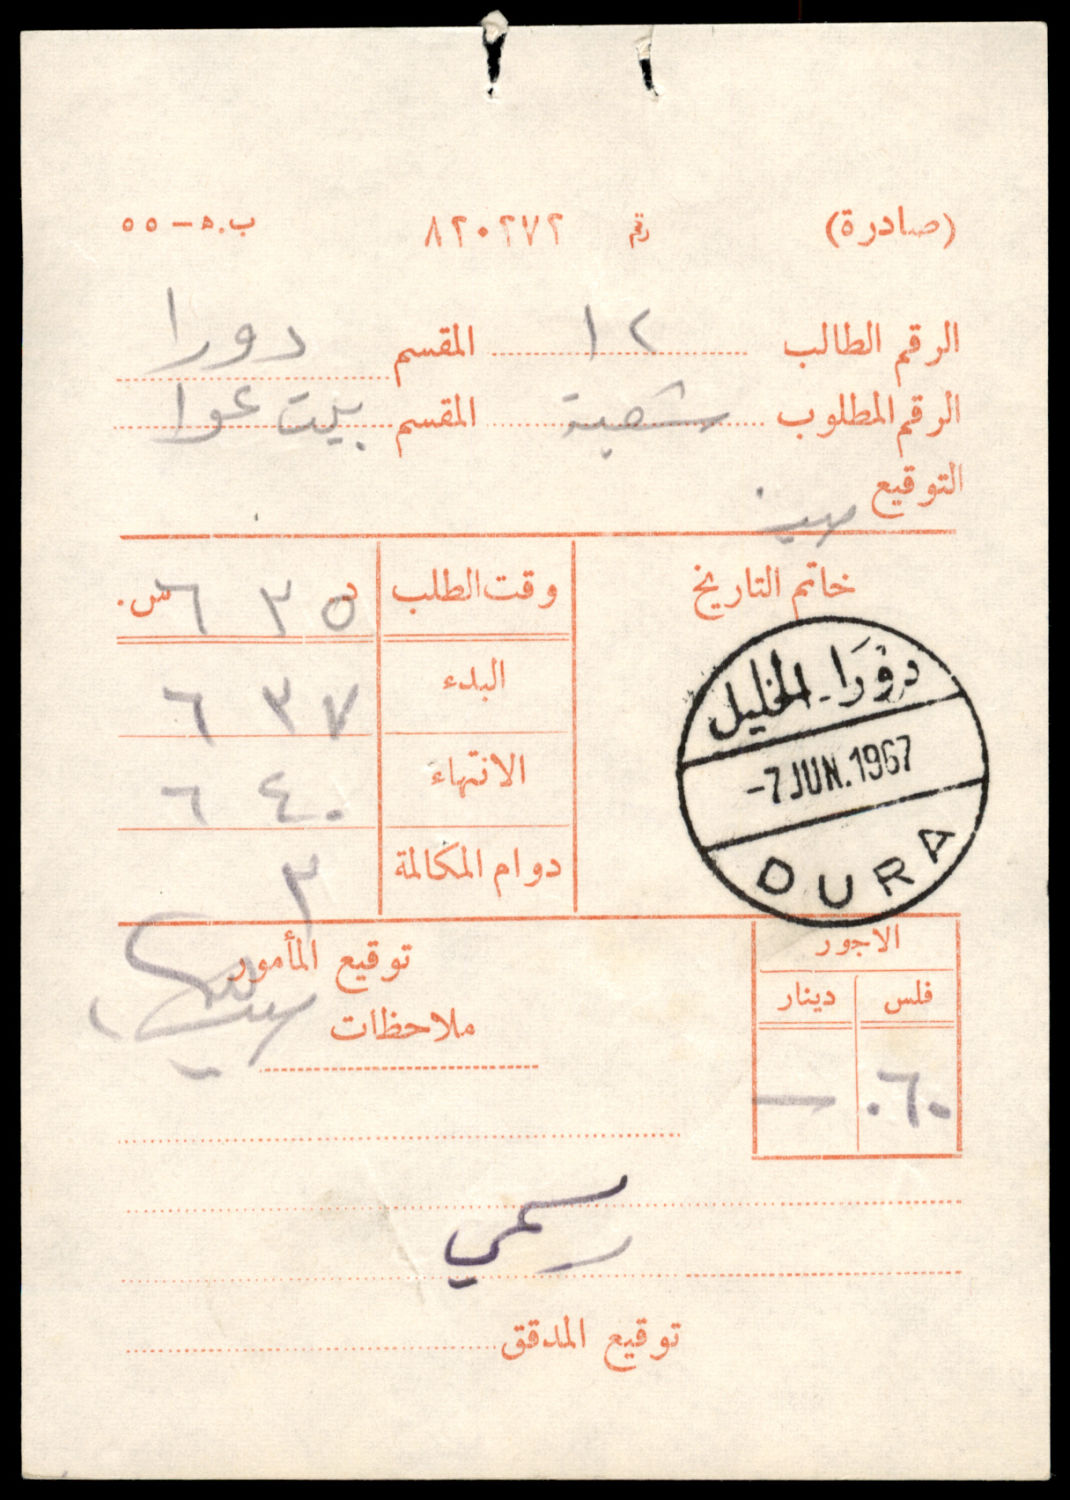 (صادرة) رقم ٨٢٠٢٧٢ ب.ه – ٥٥
الرقم الطالب ١٢ المقسم دورا
الرقم المطلوب شعبية المقسم بيت عوا
التوقيع
خاتم التاريخ
وقت الطلب د ٣٥ س. ٦
البدء ٣٧ ٦
الانتهاء ٤٠ ٦
دوام المكالمة ٣
دورا - الخليل
-7 JUN. 1967
DURA
الاجور
فلس دينار
٠٦٠ —
توقيع المأمور
ملاحظات
رسمي
توقيع المدقق